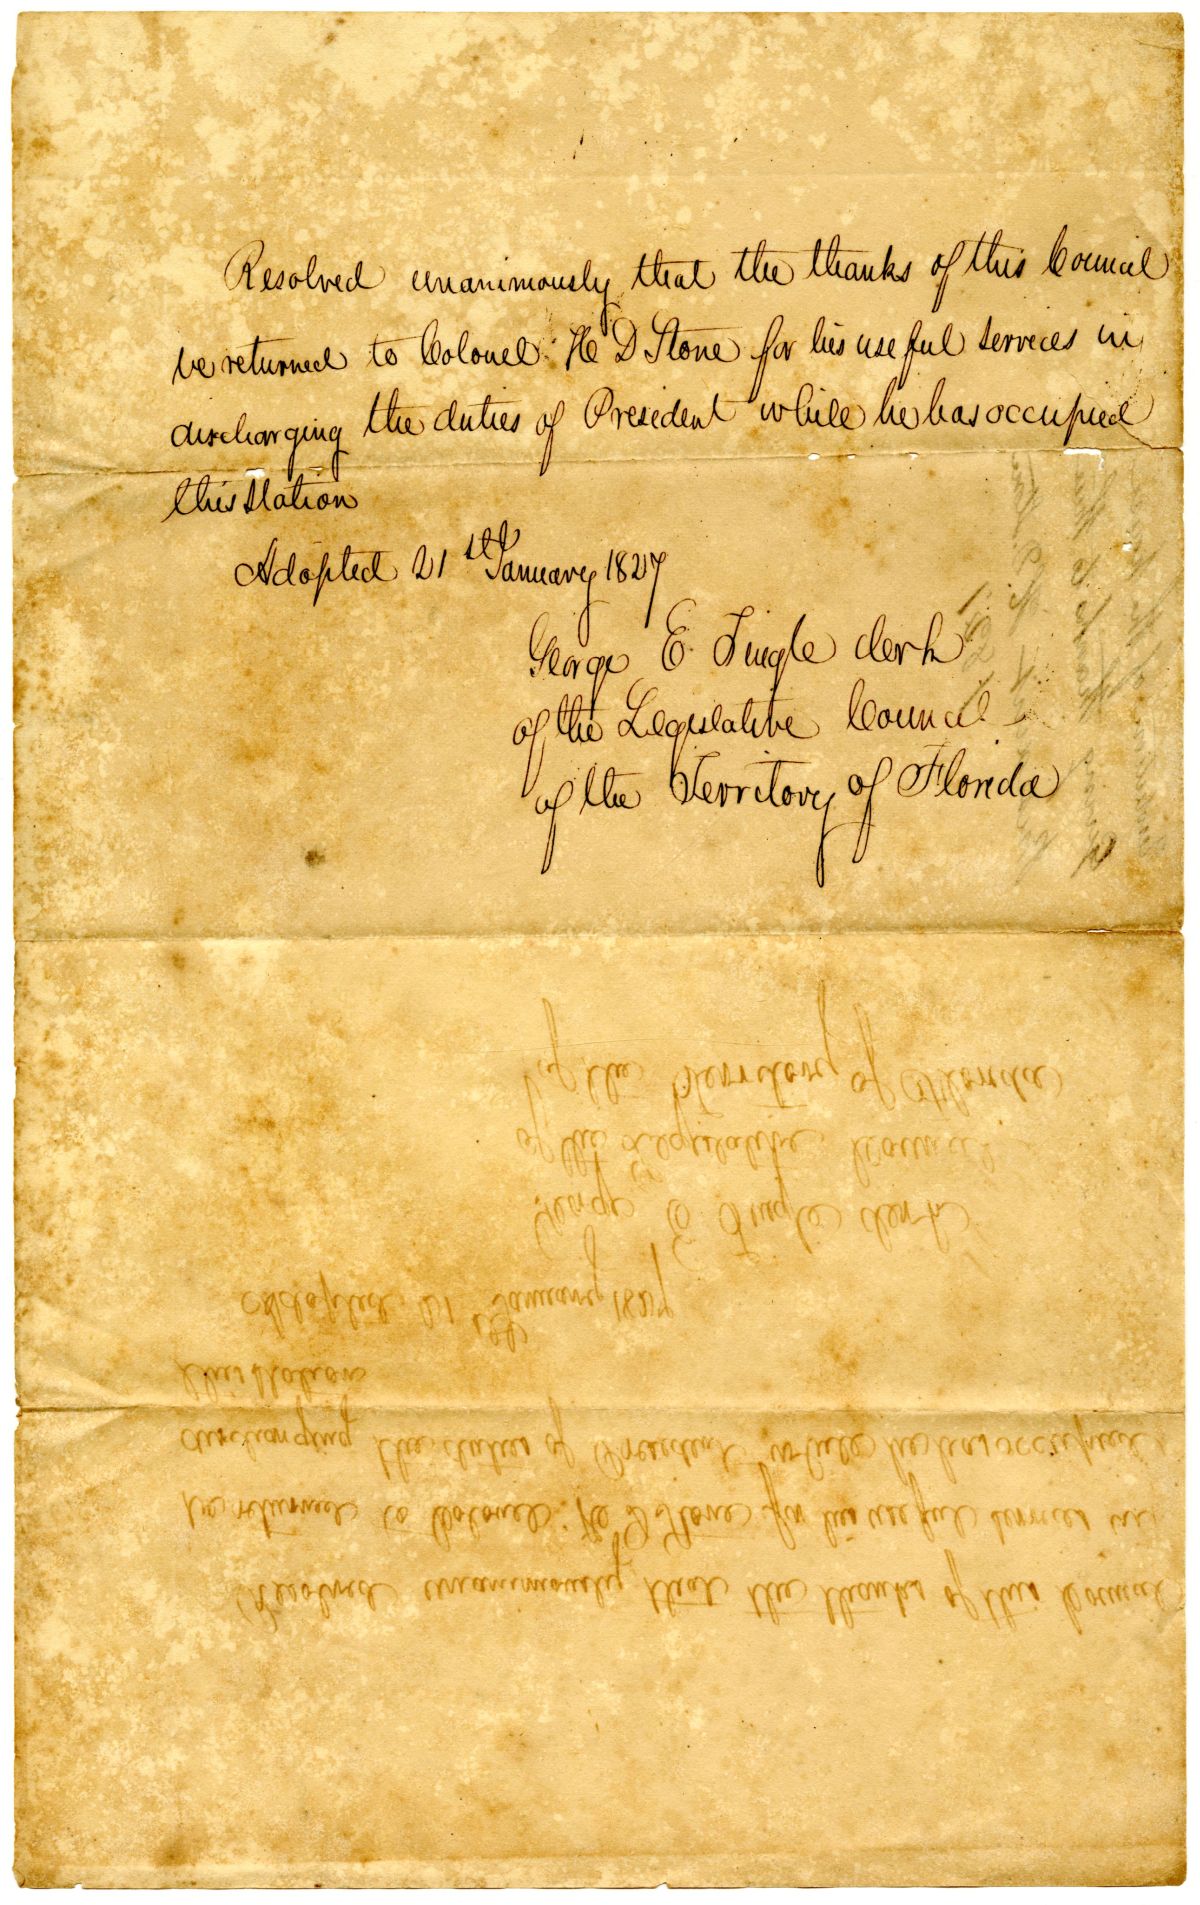 Resolved unanimously that the thanks of this Council
be returned to Colonel H D Stone for his useful services in
discharging the duties of President while he has occupied
this Station
Adopted 21st January 1827
George E. Tingle Clerk
of the Legislative Council
of the Territory of Florida